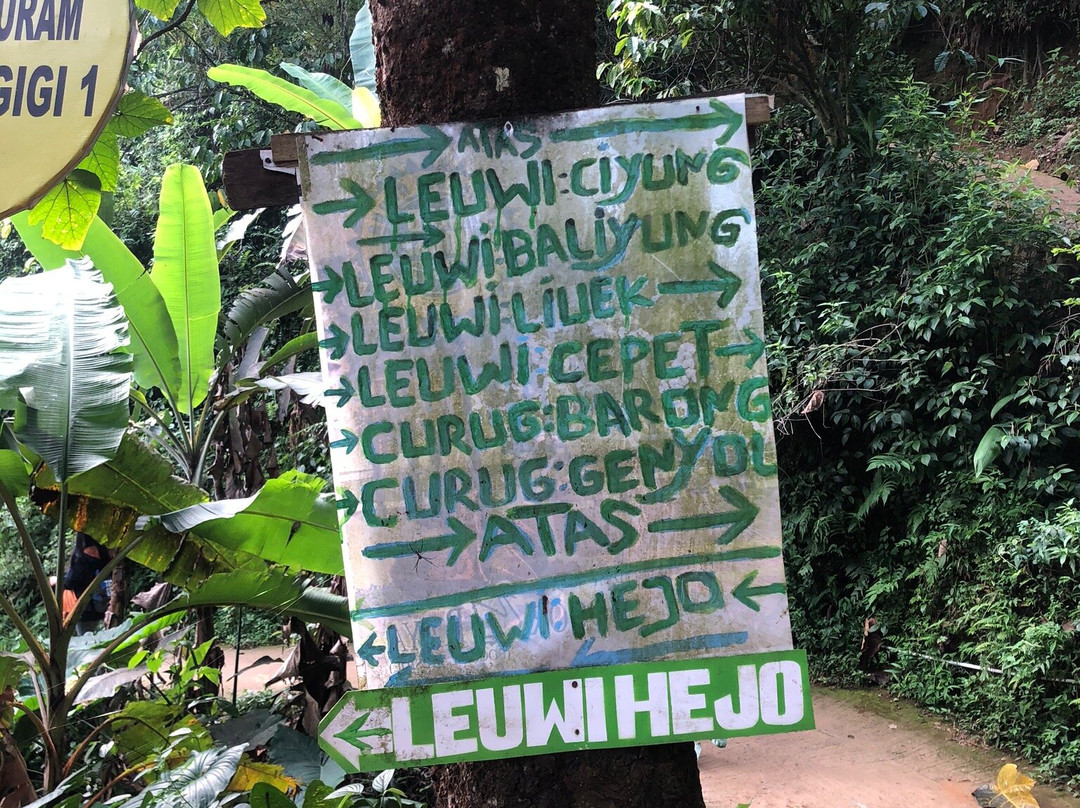 URAM
GIGI 1
ATAS
LEUWI:CIYUNG
LEUWI:BALIYUNG
LEUWI:LIUEK
LEUWI:CEPET
CURUG:BARONG
CURUG:GENYOL
ATAS
LEUWI:HEJO
LEUWI HEJO